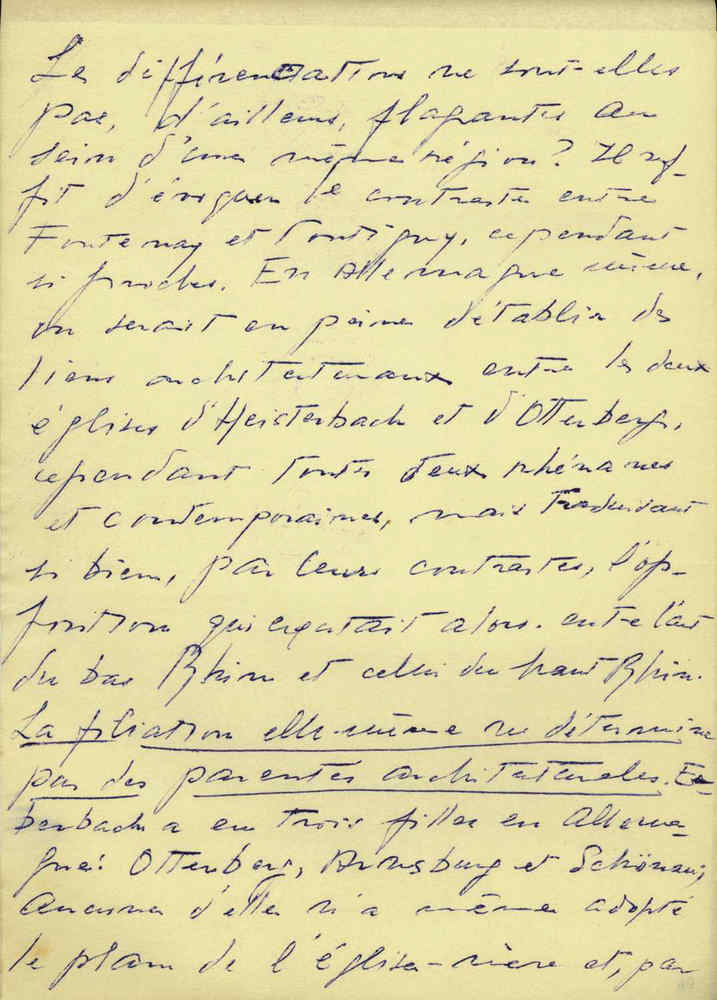 Les différenciations ne sont-elles
pas, d'ailleurs, flagrantes au
sein d'une même région? Il suf-
fit d'évoquer le contraste entre
Fontenay et Pontigny, cependant
si proches. En Allemagne même,
on serait en peine d'établir des
liens architecturaux entre les deux
églises d'Heisterbach et d'Otterberg,
cependant toutes deux rhénanes
et contemporaines, mais traduisant
si bien, par leurs contrastes, l'op-
position qui existait alors entre l'art
du bas Rhin et celui du haut Rhin.
La filiation elle-même ne détermine
pas des parentés architecturales. E-
berbach a eu trois filles en Allema-
gne: Otterberg, Arnsburg et Schönau;
aucune d'elles n'a même adopté
le plan de l'église-mère et, par